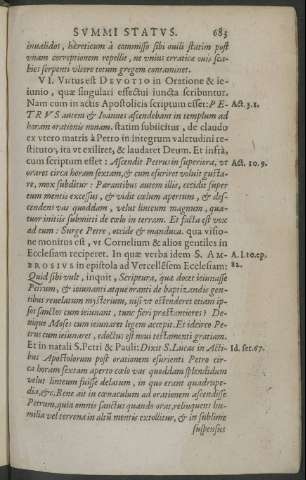 SVMMI STATVS. 683
inualidet, hæreticum à commisso sibi ouili statim post
vnam correptionem repellit, ne vnius erratica ouis sca-
bies serpenti vlcere totum gregem contaminet.
VI. Virtus est DEVOTIO in Oratione & ie-
iunio, quæ singulari effectui iuncta scribuntur.
Nam cum in actis Apostolicis scriptum esset: PE- Act. 3.1.
TRVS autem & Ioannes ascendebant in templum ad
horam orationis nonam. statim subiicitur, de claudo
ex vtero matris à Petro in integrum valetudini re-
stituto, ita vt exiliret, & laudaret Deum. Et infrà,
cum scriptum esset: Ascendit Petrus in superiora, vt Act. 10.9.
oraret circa horam sextam, & cum esuriret voluit gusta-
re, mox subditur: Parantibus autem illis, cecidit super
eum mentis excessus, & vidit cælum apertum, & des-
cendens vas quoddam, velut linteum magnum, qua-
tuor initiis submitti de cœlo in terram. Et facta est vox
ad eum: Surge Petre, occide & manduca. qua visio-
ne monitus est, vt Cornelium & alios gentiles in
Ecclesiam reciperet. In quæ verba idem S. AM- A. l.10.ep.
BROSIVS in epistola ad Vercellēsem Ecclesiam: 82.
Quid sibi vult, inquit, Scriptura, quæ docet ieiunasse
Petrum, & ieiunanti atque oranti de baptizandis gen-
tibus reuelatum mysterium, nisi vt ostenderet etiam ip-
sos sanctos cum ieiunant, tunc fieri præstantiores? De-
nique Moses cum ieiunaret legem accepit. Et ideirco Pe-
trus cum ieiunaret, edoctus est noui testamenti gratiam.
Et in natali S. Petri & Pauli: Dixit S. Lucas in Acti- Id. ser. 67.
bus Apostolorum post orationem esurienti Petro cir-
ca horam sextam aperto cœlo vas quoddam splendidum
velut linteum fuisse delatum, in quo erant quadrupe-
dia, &c. Bene ait in cœnaculum ad orationem ascendisse
Petrum, quia omnis sanctus quando orat, relinquens hu-
milia vel terrena in altū mentis extollitur, & in sublime
suspensus